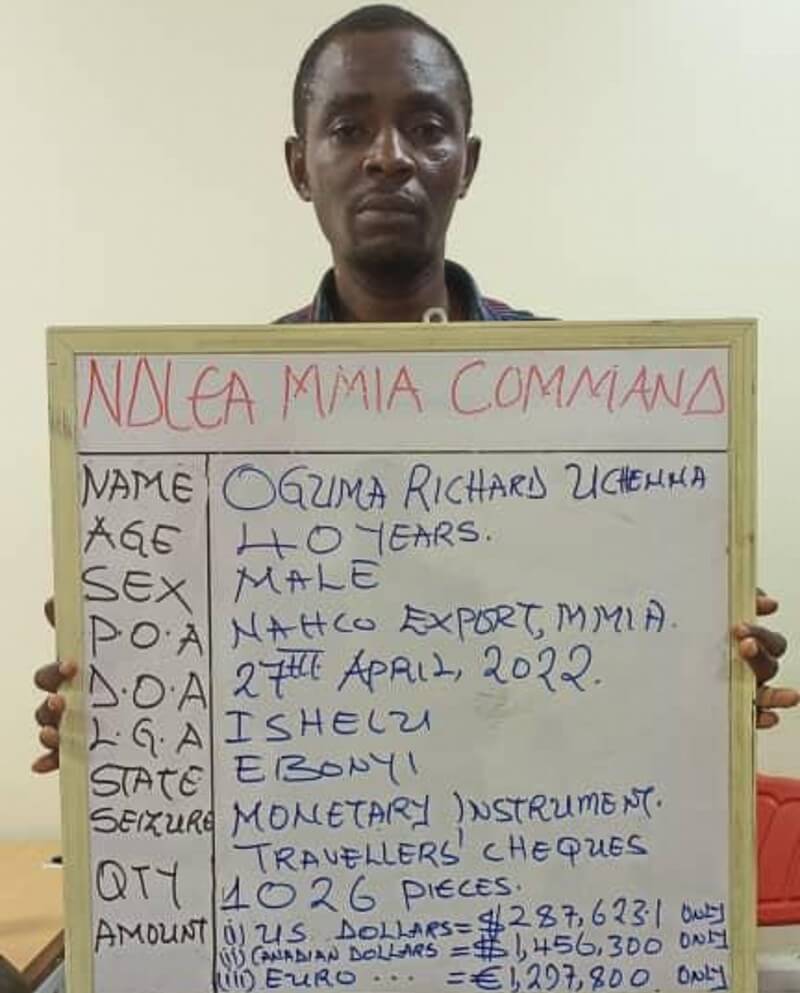 NDLEA MMIA COMMAND
NAME OGUMA RICHARD UCHENNA
AGE 40 YEARS.
SEX MALE
P.O.A NAHCO EXPORT, MMIA.
D.O.A 27TH APRIL, 2022.
L.G.A ISHELZU
STATE EBONYI
SEIZURE MONETARY INSTRUMENT.
TRAVELLERS' CHEQUES
QTY 1026 PIECES.
AMOUNT (i) US DOLLARS = $287,623.1 ONLY
(ii) CANADIAN DOLLARS = $1,456,300 ONLY
(iii) EURO ... = €1,297,800 ONLY